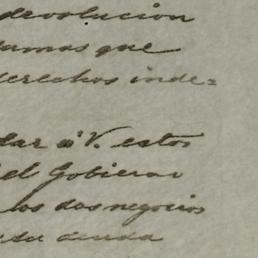 devolucion
que
derechos inde=
dar á V. estos
el Gobierno
los dos negocios
deuda